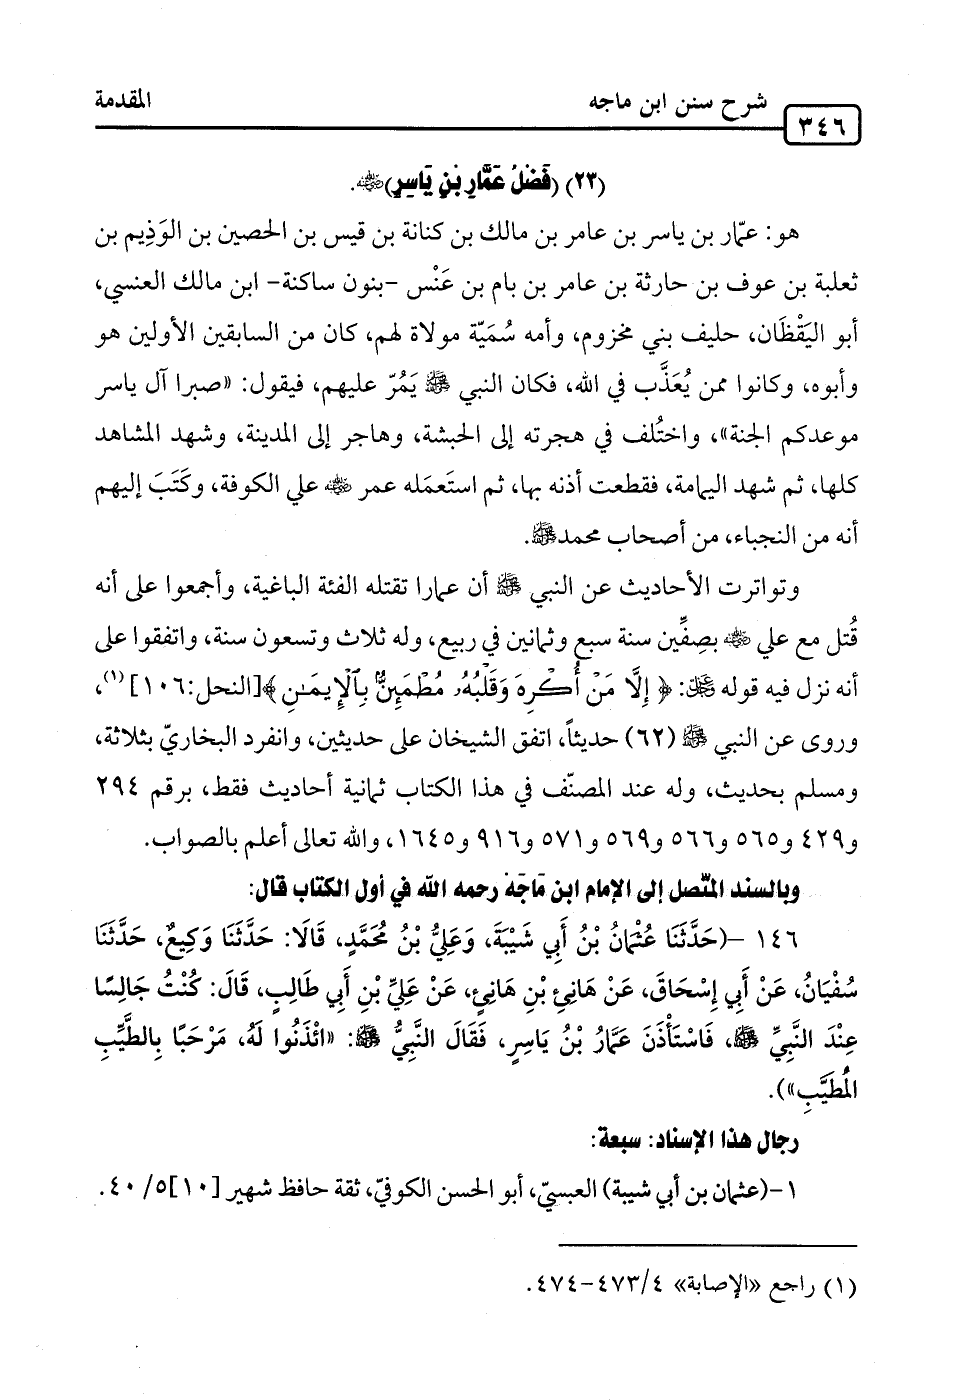 شرح سنن ابن ماجه
المقدمة
٣٤٦
(٢٣) (فَضْلُ عَمَّارِ بْنِ يَاسِرٍ) رضي الله عنه.
هو: عمّار بن ياسر بن عامر بن مالك بن كنانة بن قيس بن الحصين بن الوَذِيم بن
ثعلبة بن عوف بن حارثة بن عامر بن يام بن عَنْس -بنون ساكنة- ابن مالك العنسي،
أبو اليَقْظَان، حليف بني مخزوم، وأمه سُمَيّة مولاة لهم، كان من السابقين الأولين هو
وأبوه، وكانوا ممن يُعَذَّب في الله، فكان النبي ﷺ يَمُرّ عليهم، فيقول: «صبرا آل ياسر
موعدكم الجنة»، واختُلف في هجرته إلى الحبشة، وهاجر إلى المدينة، وشهد المشاهد
كلها، ثم شهد اليمامة، فقطعت أذنه بها، ثم استَعمَله عمر رضي الله عنه علي الكوفة، وكَتَبَ إليهم
أنه من النجباء، من أصحاب محمد ﷺ.
وتواترت الأحاديث عن النبي ﷺ أن عمارا تقتله الفئة الباغية، وأجمعوا على أنه
قُتل مع علي رضي الله عنه بصِفِّين سنة سبع وثمانين في ربيع، وله ثلاث وتسعون سنة، واتفقوا على
أنه نزل فيه قوله ﷻ: ﴿إِلَّا مَنْ أُكْرِهَ وَقَلْبُهُۥ مُطْمَئِنٌّۢ بِٱلْإِيمَـٰنِ﴾[النحل:١٠٦](١)،
وروى عن النبي ﷺ (٦٢) حديثاً، اتفق الشيخان على حديثين، وانفرد البخاريّ بثلاثة،
ومسلم بحديث، وله عند المصنّف في هذا الكتاب ثمانية أحاديث فقط، برقم ٢٩٤
و٤٢٩ و٥٦٥ و٥٦٦ و٥٦٩ و٥٧١ و٩١٦ و١٦٤٥، والله تعالى أعلم بالصواب.
وبالسند المتّصل إلى الإمام ابن مَاجَهْ رحمه الله في أول الكتاب قال:
١٤٦ -(حَدَّثَنَا عُثْمَانُ بْنُ أَبِي شَيْبَةَ، وَعَلِيُّ بْنُ مُحَمَّدٍ، قَالَا: حَدَّثَنَا وَكِيعٌ، حَدَّثَنَا
سُفْيَانُ، عَنْ أَبِي إِسْحَاقَ، عَنْ هَانِئِ بْنِ هَانِئٍ، عَنْ عَلِيِّ بْنِ أَبِي طَالِبٍ، قَالَ: كُنْتُ جَالِسًا
عِنْدَ النَّبِيِّ ﷺ، فَاسْتَأْذَنَ عَمَّارُ بْنُ يَاسِرٍ، فَقَالَ النَّبِيُّ ﷺ: «ائْذَنُوا لَهُ، مَرْحَبًا بِالطَّيِّبِ
المُطَيَّبِ»).
رجال هذا الإسناد: سبعة:
١-(عثمان بن أبي شيبة) العبسيّ، أبو الحسن الكوفيّ، ثقة حافظ شهير [١٠]٥/ ٤٠.
(١) راجع «الإصابة» ٤/ ٤٧٣-٤٧٤.